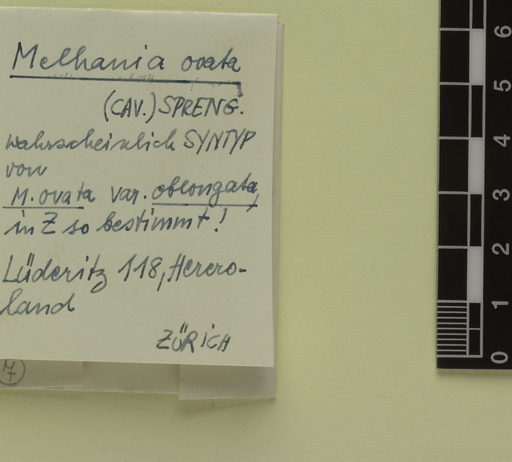 Melhania ovata
(CAV.) SPRENG.
wahrscheinlich SYNTYP
von
M. ovata var. oblongata,
in Z so bestimmt!
Lüderitz 118, Herero-
land
ZÜRICH
6
5
4
3
2
1
0